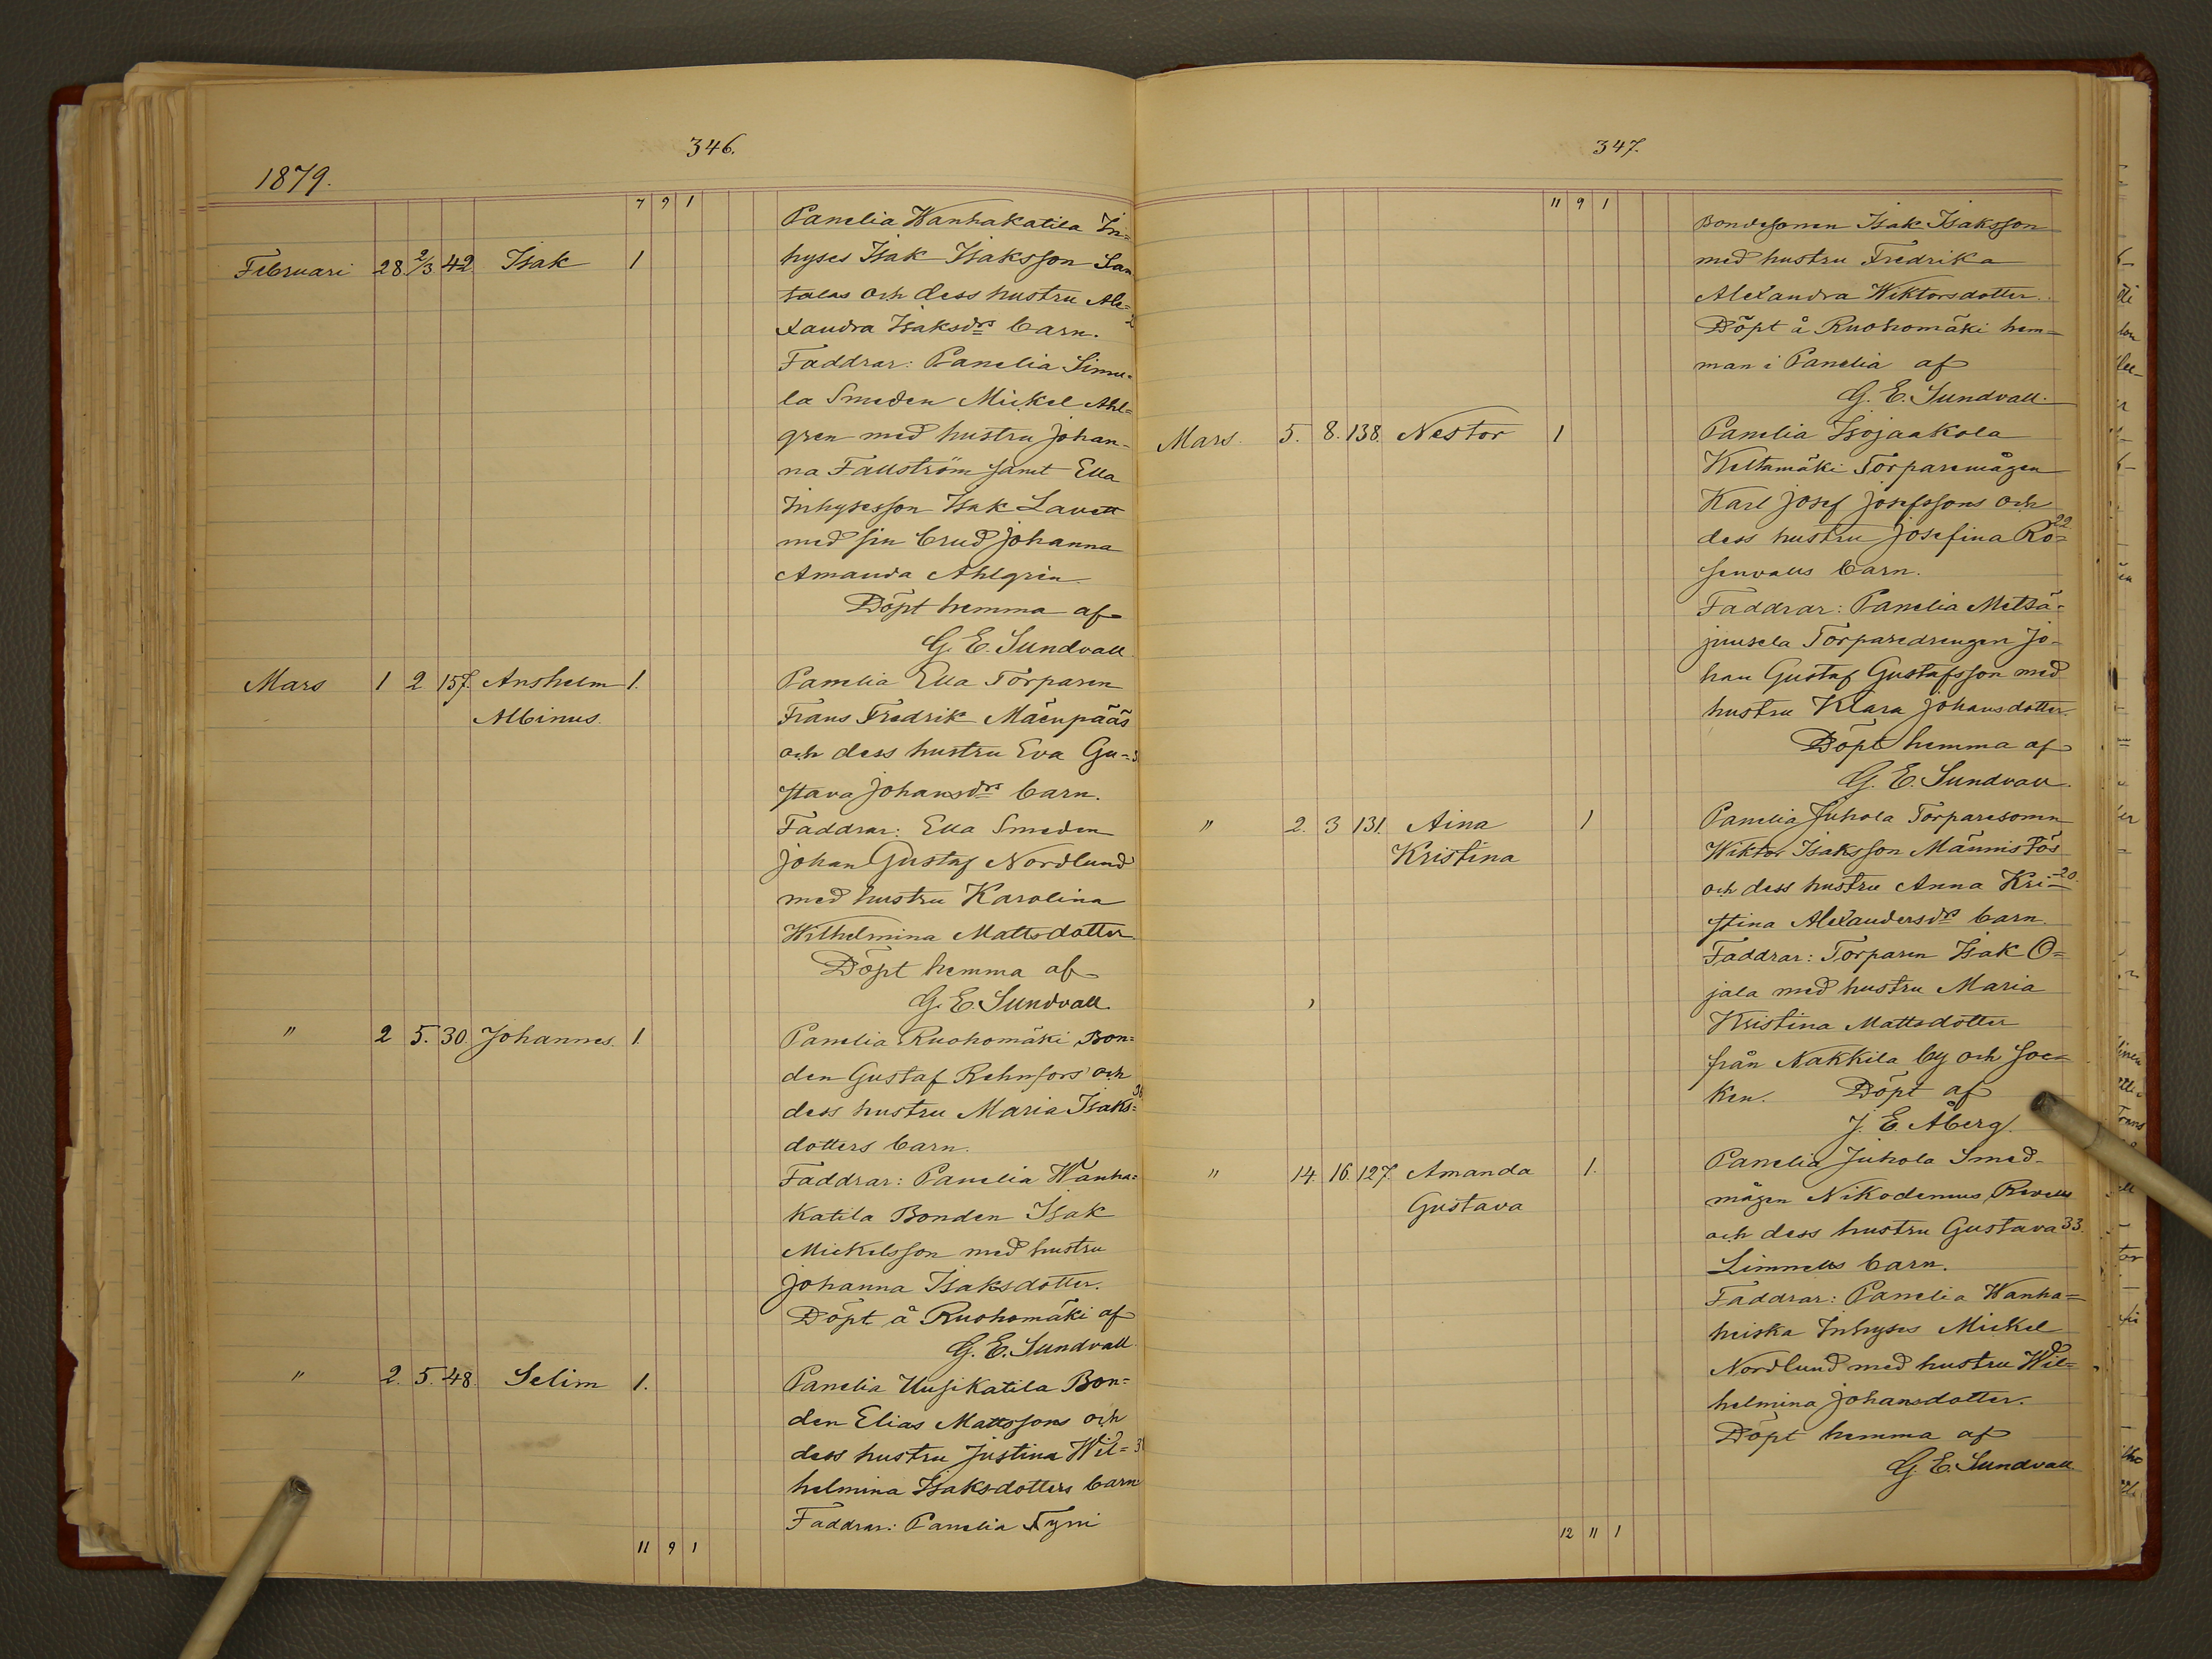 346.
1879.
7 9 1
Panelia Wanhakatila In=
Februari 28 2/3 42 Isak 1 hyses Isak Isaksson San
talas och dess hustru Ale=
xandra Isaksdrs barn.
Faddrar: Panelia Simu=
la Smeden Mickel Ahl=
gren med hustru Johan-
na Fallström samt Ella
Inhysesson Isak Lavett
med sin brud Johanna
Amanda Ahlgren
Döpt hemma af
G. E. Sundvall
Mars 1 2 157. Anshelm 1. Panelia Ella Torparen
Albinus. Frans Fredrik Mäenpääs
och dess hustru Eva Gu=
stava Johansdrs barn.
Faddrar: Ella Smeden
Johan Gustaf Nordlund
med hustru Karolina
Wilhelmina Mattsdotter
Döpt hemma af
G. E. Sundvall.
" 2 5. 30. Johannes. 1. Panelia Ruohomäki Bon=
den Gustaf Rehnfors och
dess hustru Maria Isaks=
dotters barn.
Faddrar: Panelia Wanha=
katila Bonden Isak
Mickelsson med hustru
Johanna Isaksdotter.
Döpt å Ruohomäki af
G. E. Sundvall.
" 2. 5. 48. Selim 1. Panelia Uusikatila Bon=
den Elias Mattssons och
dess hustru Justina Wil=
helmina Isaksdotters barn
Faddrar: Panelia Tyni
11 9 1
347.
11 9 1
Bondesonen Isak Isaksson
med hustru Fredrika
Alexandra Wiktorsdotter.
Döpt å Ruohomäki hem=
man i Panelia af
G. E. Sundvall.
Mars. 5. 8. 138. Nestor 1 Panelia Isojaakola
Keltamäki Torparemågen
Karl Josef Josefssons och
dess hustru Josefina Ro= 22
senvalls barn.
Faddrar: Panelia Metsä=
juusela Torparedrengen Jo-
han Gustaf Gustafsson med
hustru Klara Johansdotter.
Döpt hemma af
G. E. Sundvall.
" 2. 3 131. Aina 1 Panelia Juhola Torparesonen
Kristina Wiktor Isaksson Männistös
och dess hustru Anna Kri= 20.
stina Alexandersdrs barn
Faddrar: Torparen Isak O=
jala med hustru Maria
Kristina Mattsdotter
från Nakkila by och soc=
ken. Döpt af
J. E. Åberg.
" 14. 16. 127. Amanda 1. Panelia Juhola Smed-
Gustava mågen Nikodemus Revells
och dess hustru Gustava 33.
Limnells barn.
Faddrar: Panelia Wanha=
heiska Inhyses Mickel
Nordlund med hustru Wil=
helmina Johansdotter.
Döpt hemma af
G. E. Sundvall.
12 11 1